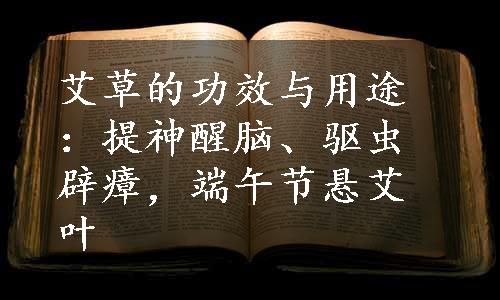 艾草的功效与用途
：提神醒脑、驱虫
辟瘴，端午节悬艾
叶